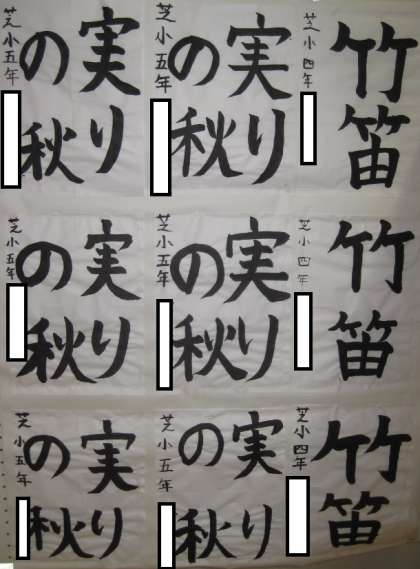 竹笛
芝小四年
実り
の秋
芝小五年
実り
の秋
芝小五年
竹笛
芝小四年
実り
の秋
芝小五年
実り
の秋
芝小五年
竹笛
芝小四年
実り
の秋
芝小五年
実り
の秋
芝小五年